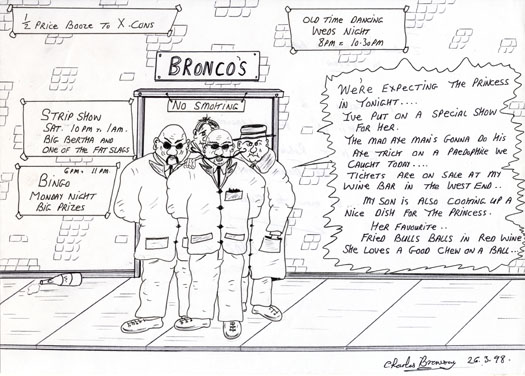 ½ PRICE BOOZE TO X.CONS
OLD TIME DANCING
WEDS NIGHT
8PM = 10.30PM
BRONCO'S
NO SMOKING
STRIP SHOW
SAT. 10PM > 1AM.
BIG BERTHA AND
ONE OF THE FAT SLAGS
6PM = 11PM
BINGO
MONDAY NIGHT
BIG PRIZES
WE'RE EXPECTING THE PRINCESS
IN TONIGHT....
I'VE PUT ON A SPECIAL SHOW
FOR HER.
THE MAD AXE MAN'S GONNA DO HIS
AXE TRICK ON A PAEDOPHILE WE
CAUGHT TODAY....
TICKETS ARE ON SALE AT MY
WINE BAR IN THE WEST END..
MY SON IS ALSO COOKING UP A
NICE DISH FOR THE PRINCESS.
HER FAVOURITE..
FRIED BULLS BALLS IN RED WINE
SHE LOVES A GOOD CHEW ON A BALL...
Charles Bronson 26.3.98.